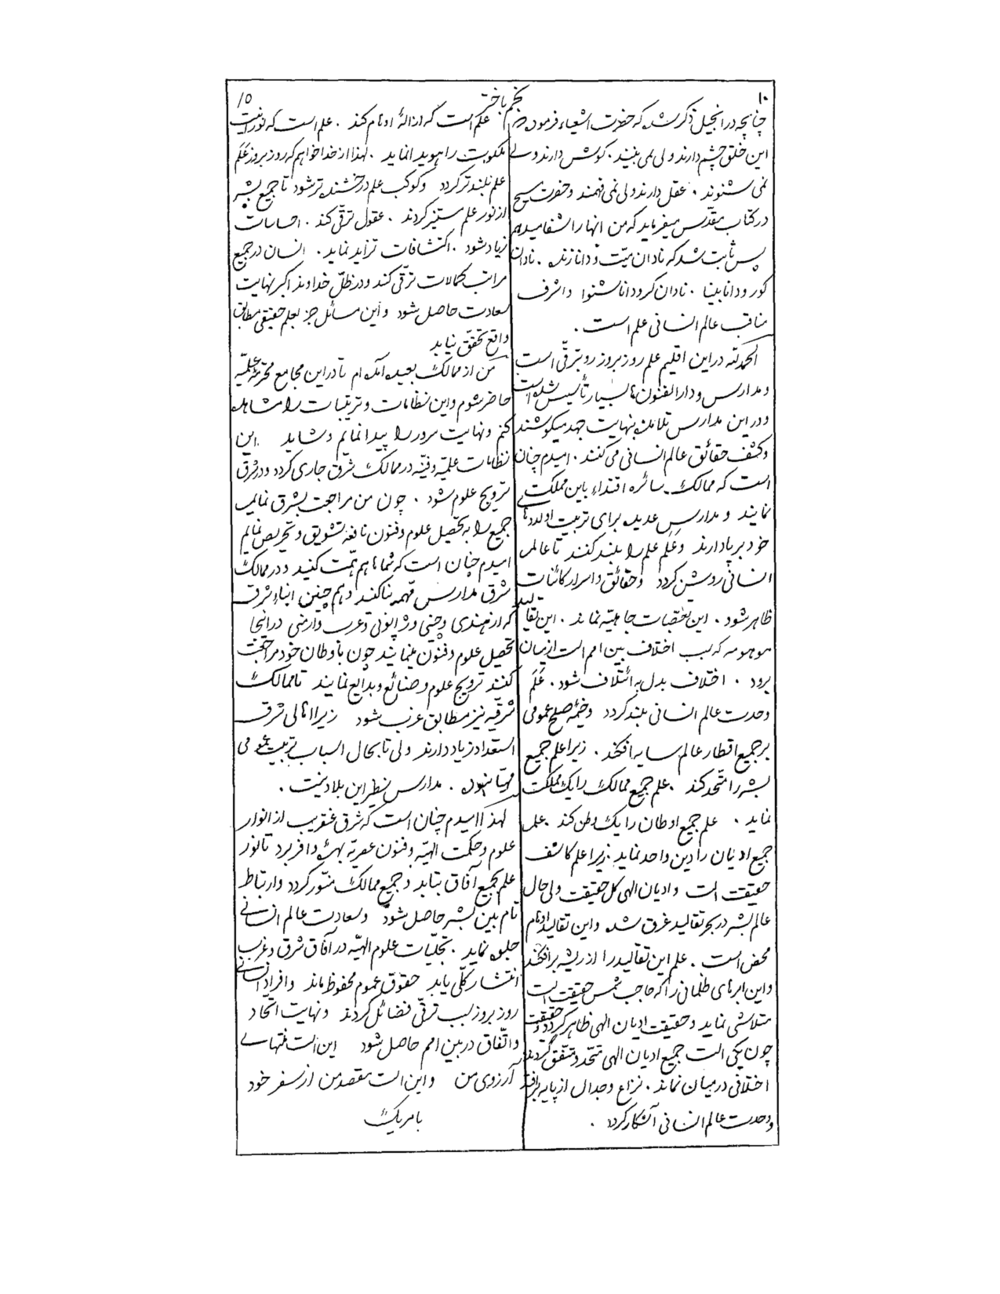 ۱۰
نجم باختر
۱۵
چنانچه در انجیل ذکر شد که حضرت اشعیاء فرموده
این خلق چشم دارند ولی نمی بینند . گوش دارند ولی
نمی شنوند . عقل دارند ولی نمی فهمند و حضرت مسیح
در کتاب مقدس میفرماید که من انها را شفا میدهم
پس ثابت شد که نادان میّت و دانا زنده . نادان
کور و دانا بینا . نادان کر و دانا شنوا و اشرف
مناقب عالم انسانی علم است .
الحمد لله در این اقلیم علم روز بروز رو بترقّی است
و مدارس و دار الفنون ها بسیار تأسیس شده است
و در این مدارس تلامذه بنهایت جهد میکوشند
و کشف حقائق عالم انسانی می کنند . امیدم چنان
است که ممالک سائره اقتداء باین مملکت
نمایند و مدارس عدیده برای تربیت اولادها
خود بر پا دارند و عَلَم علم را بلند کنند تا عالم
انسانی روشن گردد و حقائق و اسرار کائنات
ظاهر شود . این تعصّبات جاهلیّه نماند . این تقالید
موهومه که سبب اختلاف بین امم است از میان
برود . اختلاف بدل به ائتلاف شود . عَلَم
وحدت عالم انسانی بلند گردد و خیمهٔ صلح عمومی
بر جمیع اقطار عالم سایه افکند . زیرا علم جمیع
بشر را متّحد کند . علم جمیع ممالک را یک مملکت
نماید . علم جمیع اوطان را یک وطن کند . علم
جمیع ادیان را دین واحد نماید . زیرا علم کاشف
حقیقت است و ادیان الهی کلّ حقیقت ولی حال
عالم بشر در بحر تقالید غرق شده و این تقالید اوهام
محض است . علم این تقالید را از ریشه بر افکند
و این ابرهای ظلمانی را که حاجب شمس حقیقت است
متلاشی نماید و حقیقت ادیان الهی ظاهر گردد و حقیقت
چون یکی است جمیع ادیان الهی متّحد و متّفق گردند
اختلافی در میان نماند . نزاع و جدال از پایه بر افتد
وحدت عالم انسانی آشکار گردد .
علم است که ازالهٔ اوهام کند . علم است که نورانیت
ملکوت را هویدا نماید . لهذا از خدا خواهم که روز بروز عَلَم
علم بلند تر گردد و کوکب علم درخشنده تر شود تا جمیع بشر
از نور علم مستنیر گردند . عقول ترقّی کند . احساسات
زیاد شود . اکتشافات تزاید نماید . انسان در جمیع
مراتب کمالات ترقّی کند و در ظلّ خداوند اکبر نهایت
سعادت حاصل شود و این مسائل جز بعلم حقیقی مطابق
واقع تحقّق نیابد
من از ممالک بعیده آمده ام تا در این مجامع محترمهٔ علمیّه
حاضر شوم و این نظامات و ترتیبات را مشاهده
کنم و نهایت سرور را پیدا نمایم و شاید این
نظامات علمیّه و فنّیه در ممالک شرق جاری گردد و در شرق
ترویج علوم شود . چون من مراجعت بشرق نمایم
جمیع را به تحصیل علوم و فنون نافعه تشویق و تحریص نمایم
امیدم چنان است که شما ها هم همّت کنید و در ممالک
شرق مدارس مهمّه بنا کنند و هم چنین ابناء شرق
که از هندی و چینی و ژاپونی و عرب و ارمنی در اینجا
تحصیل علوم و فنون مینمایند چون باوطان خود مراجعت
کنند ترویج علوم و صنائع و بدایع نمایند تا ممالک
شرقیّه نیز مطابق غرب شود زیرا اهالی شرق
استعداد زیاد دارند ولی تا بحال اسباب تربیت عمومی
مهیّا نبوده . مدارس نظیر این بلاد نیست .
لهذا امیدم چنان است که شرق عنقریب از انوار
علوم و حکمت الهیّه و فنون عصریّه بهرهٔ وافر برد تا نور
علم بجمیع آفاق بتابد و جمیع ممالک منوّر گردد و ارتباط
تام بین بشر حاصل شود و سعادت عالم انسانی
جلوه نماید . تجلّیات علوم الهیّه در آفاق شرق و غرب
انتشار کلّی یابد حقوق عموم محفوظ ماند و افراد انسانی
روز بروز سبب ترقّی فضائل گردند و نهایت اتحاد
و اتّفاق در بین امم حاصل شود این است منتهای
آرزوی من و این است مقصد من از سفر خود
بامریک